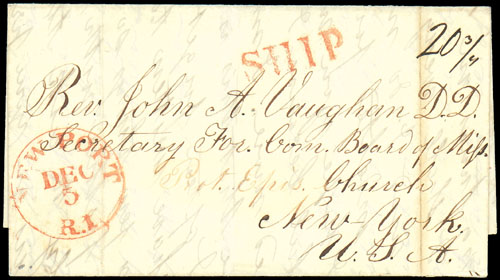 SHIP
20 3/4
Rev. John A. Vaughan D.D.
Secretary For. Com. Board of Miss.
Prot. Epis. Church
New York.
U. S. A.
NEWPORT
DEC
5
R.I.